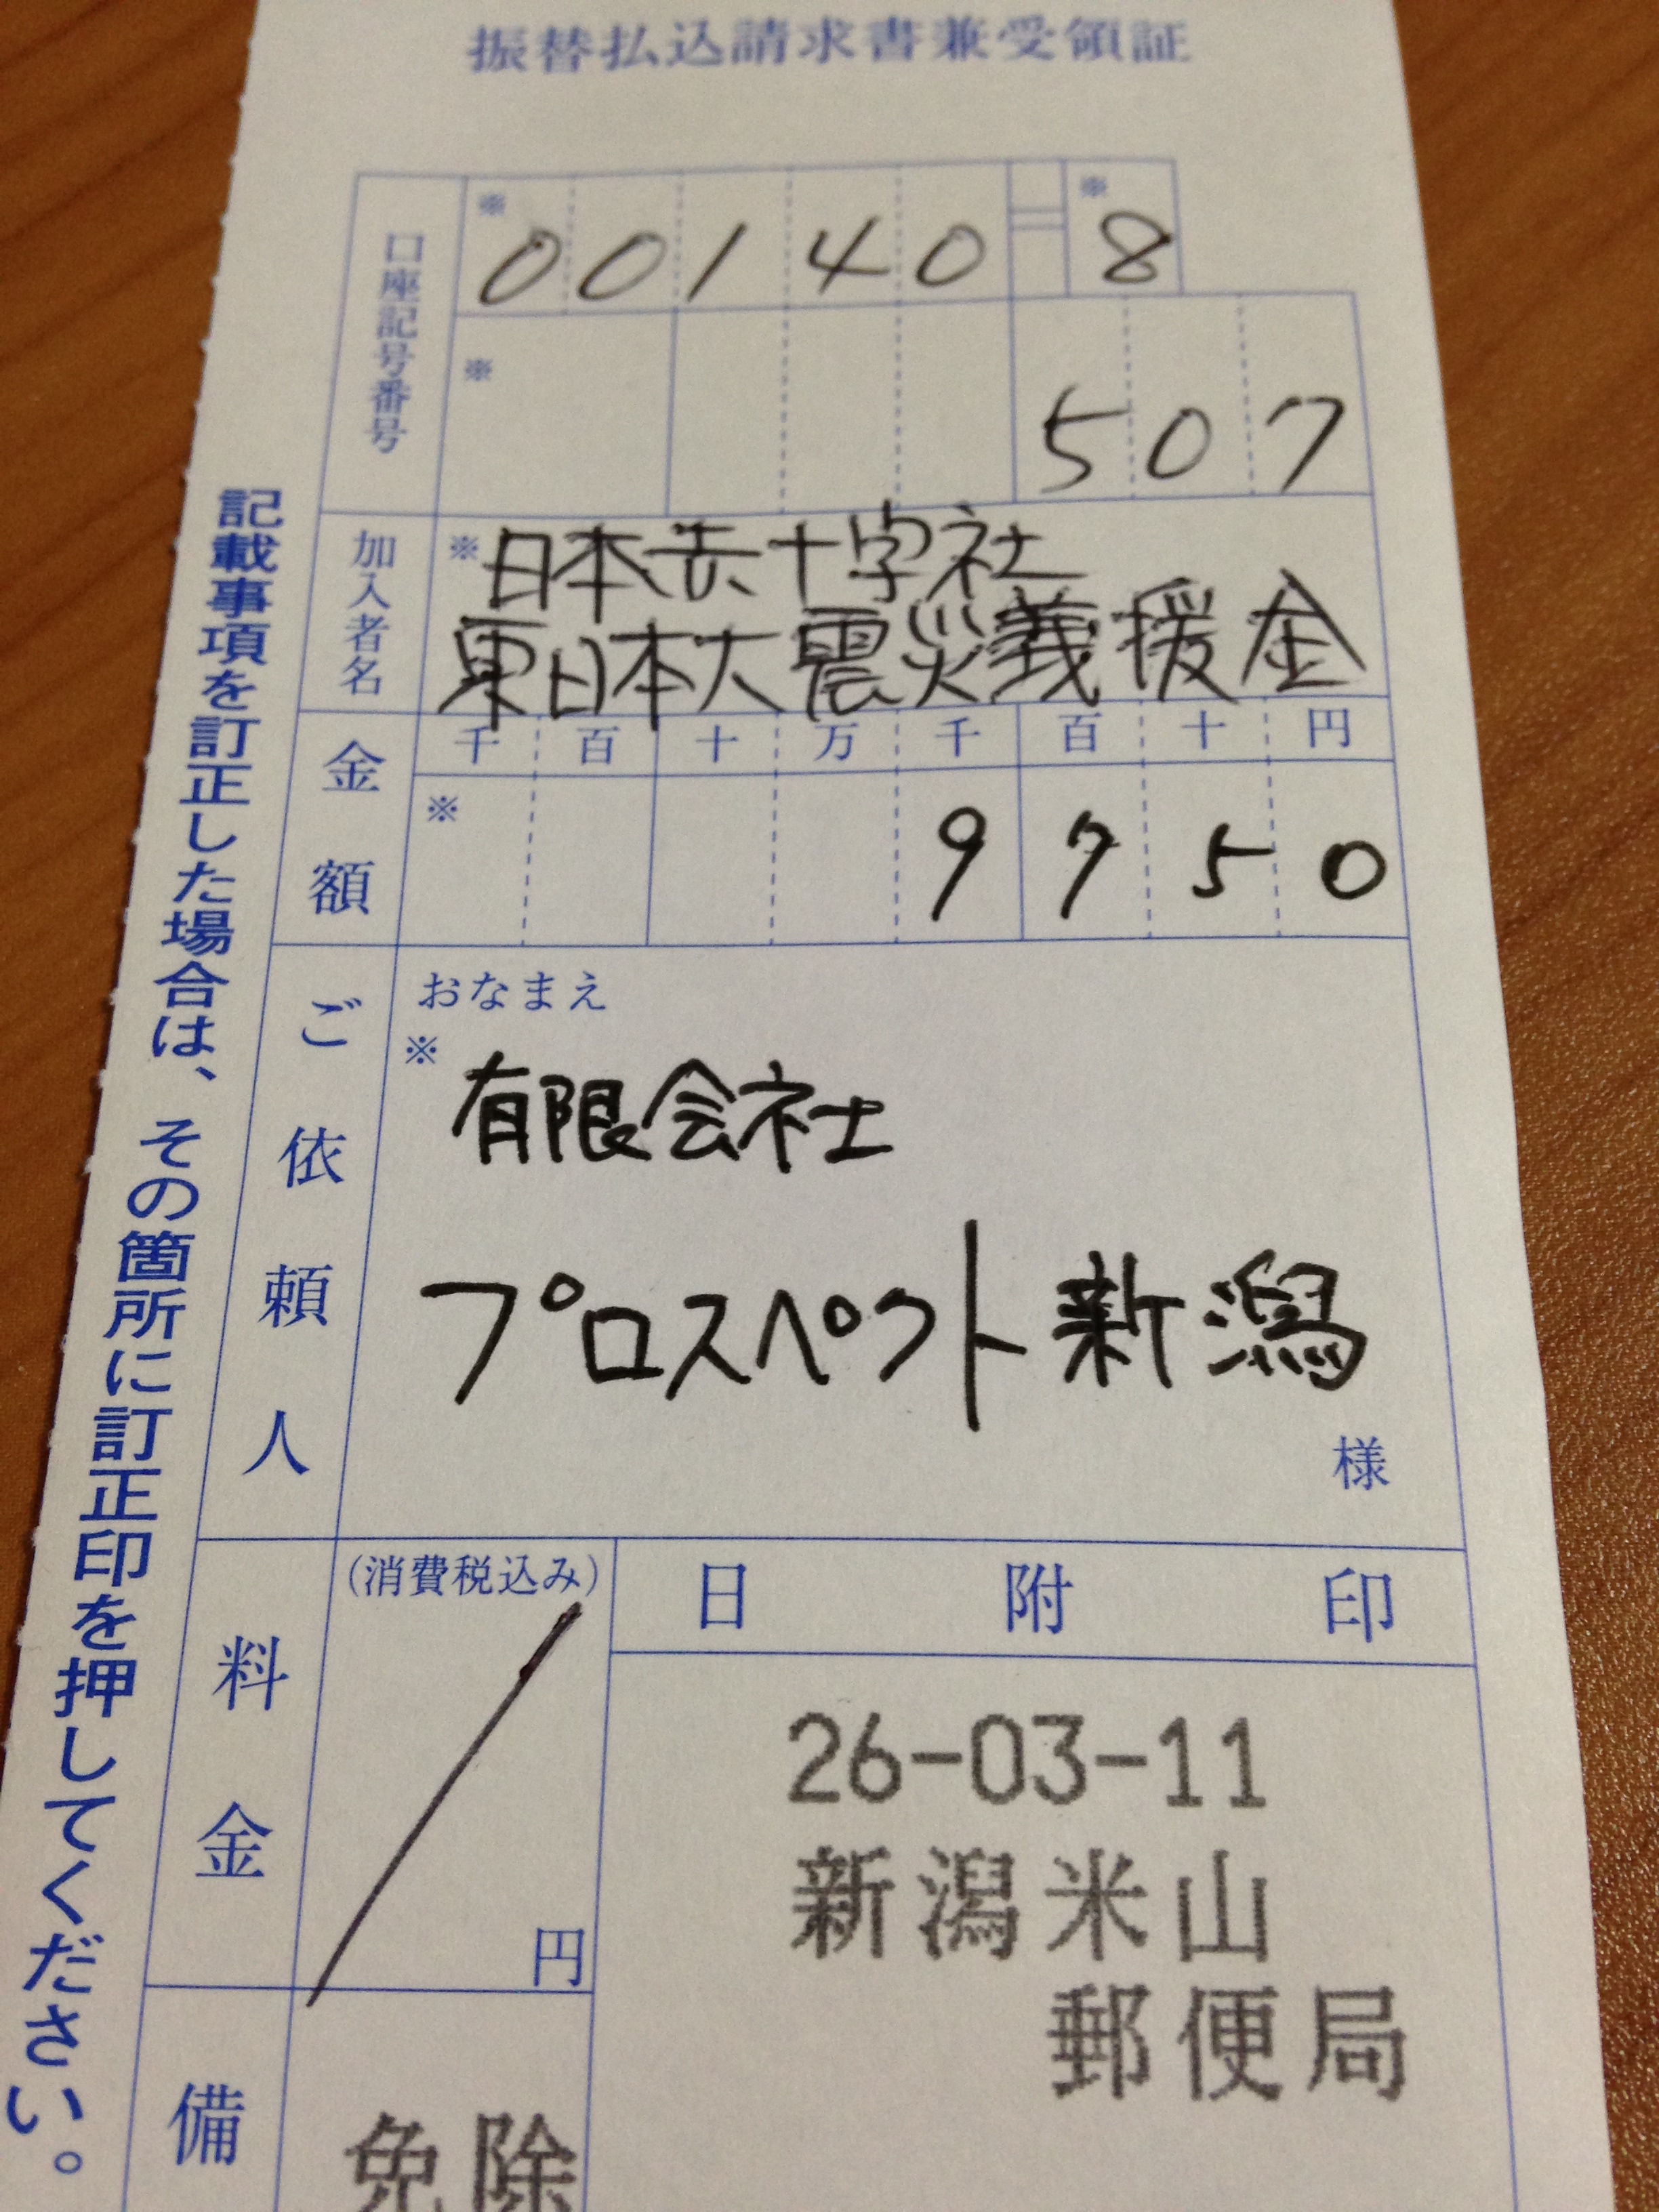 振替払込請求書兼受領証
口座記号番号
※ ※
00140 8
※
507
加入者名
※日本赤十字社
東日本大震災義援金
金額
千百十万千百十円
※
9750
ご依頼人
おなまえ
※
有限会社
プロスペクト新潟
様
料金
(消費税込み)
円
日附印
26-03-11
新潟米山
郵便局
備
免除
記載事項を訂正した場合は、その箇所に訂正印を押してください。